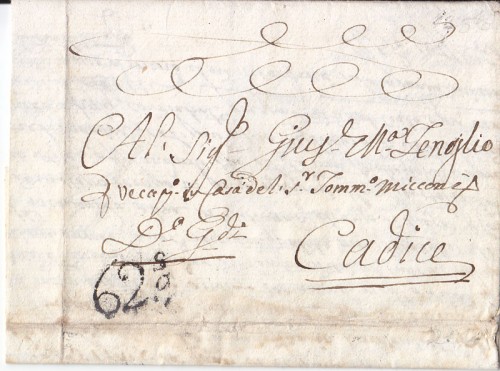 Al Sig.r Gius.e M.a Tenglio
recap.o in Casa del S.r Tomm.o Miccone
Cadice
62